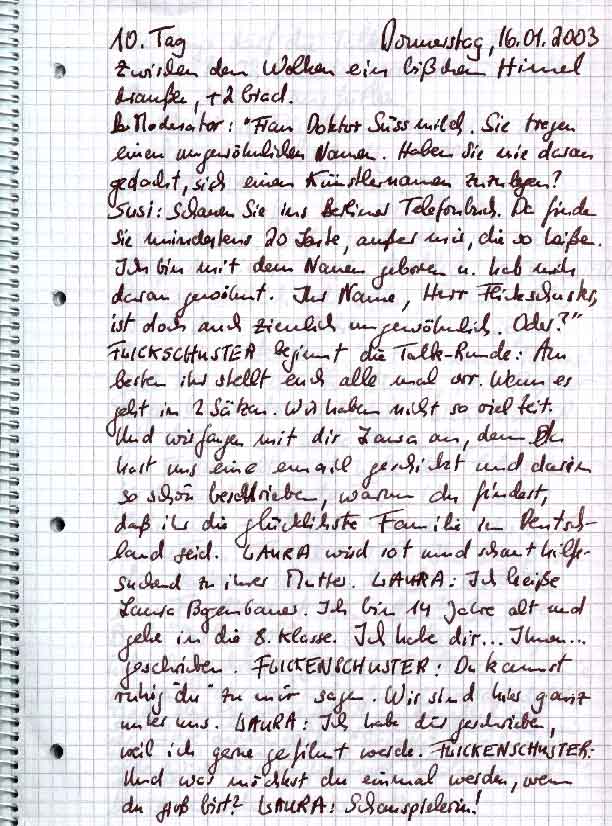 10. Tag Donnerstag, 16.01.2003
Zwischen den Wolken ein bißchen Himmel
draußen, +2 Grad.
Der Moderator: "Frau Doktor Süssmilch. Sie tragen
einen ungewöhnlichen Namen. Haben Sie nie daran
gedacht, sich einen Künstlernamen zuzulegen?
Susi: Schauen Sie ins Berliner Telefonbuch. Da finden
Sie mindestens 20 Leute, außer mir, die so heißen.
Ich bin mit dem Namen geboren u. hab mich
daran gewöhnt. Ihr Name, Herr Flickschuster,
ist doch auch ziemlich ungewöhnlich. Oder?"
FLICKSCHUSTER beginnt die Talk-Runde: Am
besten ihr stellt euch alle mal vor. Wenn es
geht in 2 Sätzen. Wir haben nicht so viel Zeit.
Und wir fangen mit dir Laura an, denn Du
hast uns eine email geschickt und darin
so schön beschrieben, warum du findest,
daß ihr die glücklichste Familie in Deutsch-
land seid. LAURA wird rot und schaut hilfe-
suchend zu ihrer Mutter. LAURA: Ich heiße
Laura Bogenbauer. Ich bin 14 Jahre alt und
gehe in die 8. Klasse. Ich habe dir... Ihnen...
geschrieben. FLICKENSCHUSTER: Du kannst
ruhig "du" zu mir sagen. Wir sind hier ganz
unter uns. LAURA: Ich habe dir geschrieben,
weil ich gerne gefilmt werde. FLICKENSCHUSTER:
Und was möchtest du einmal werden, wenn
du groß bist? LAURA: Schauspielerin!